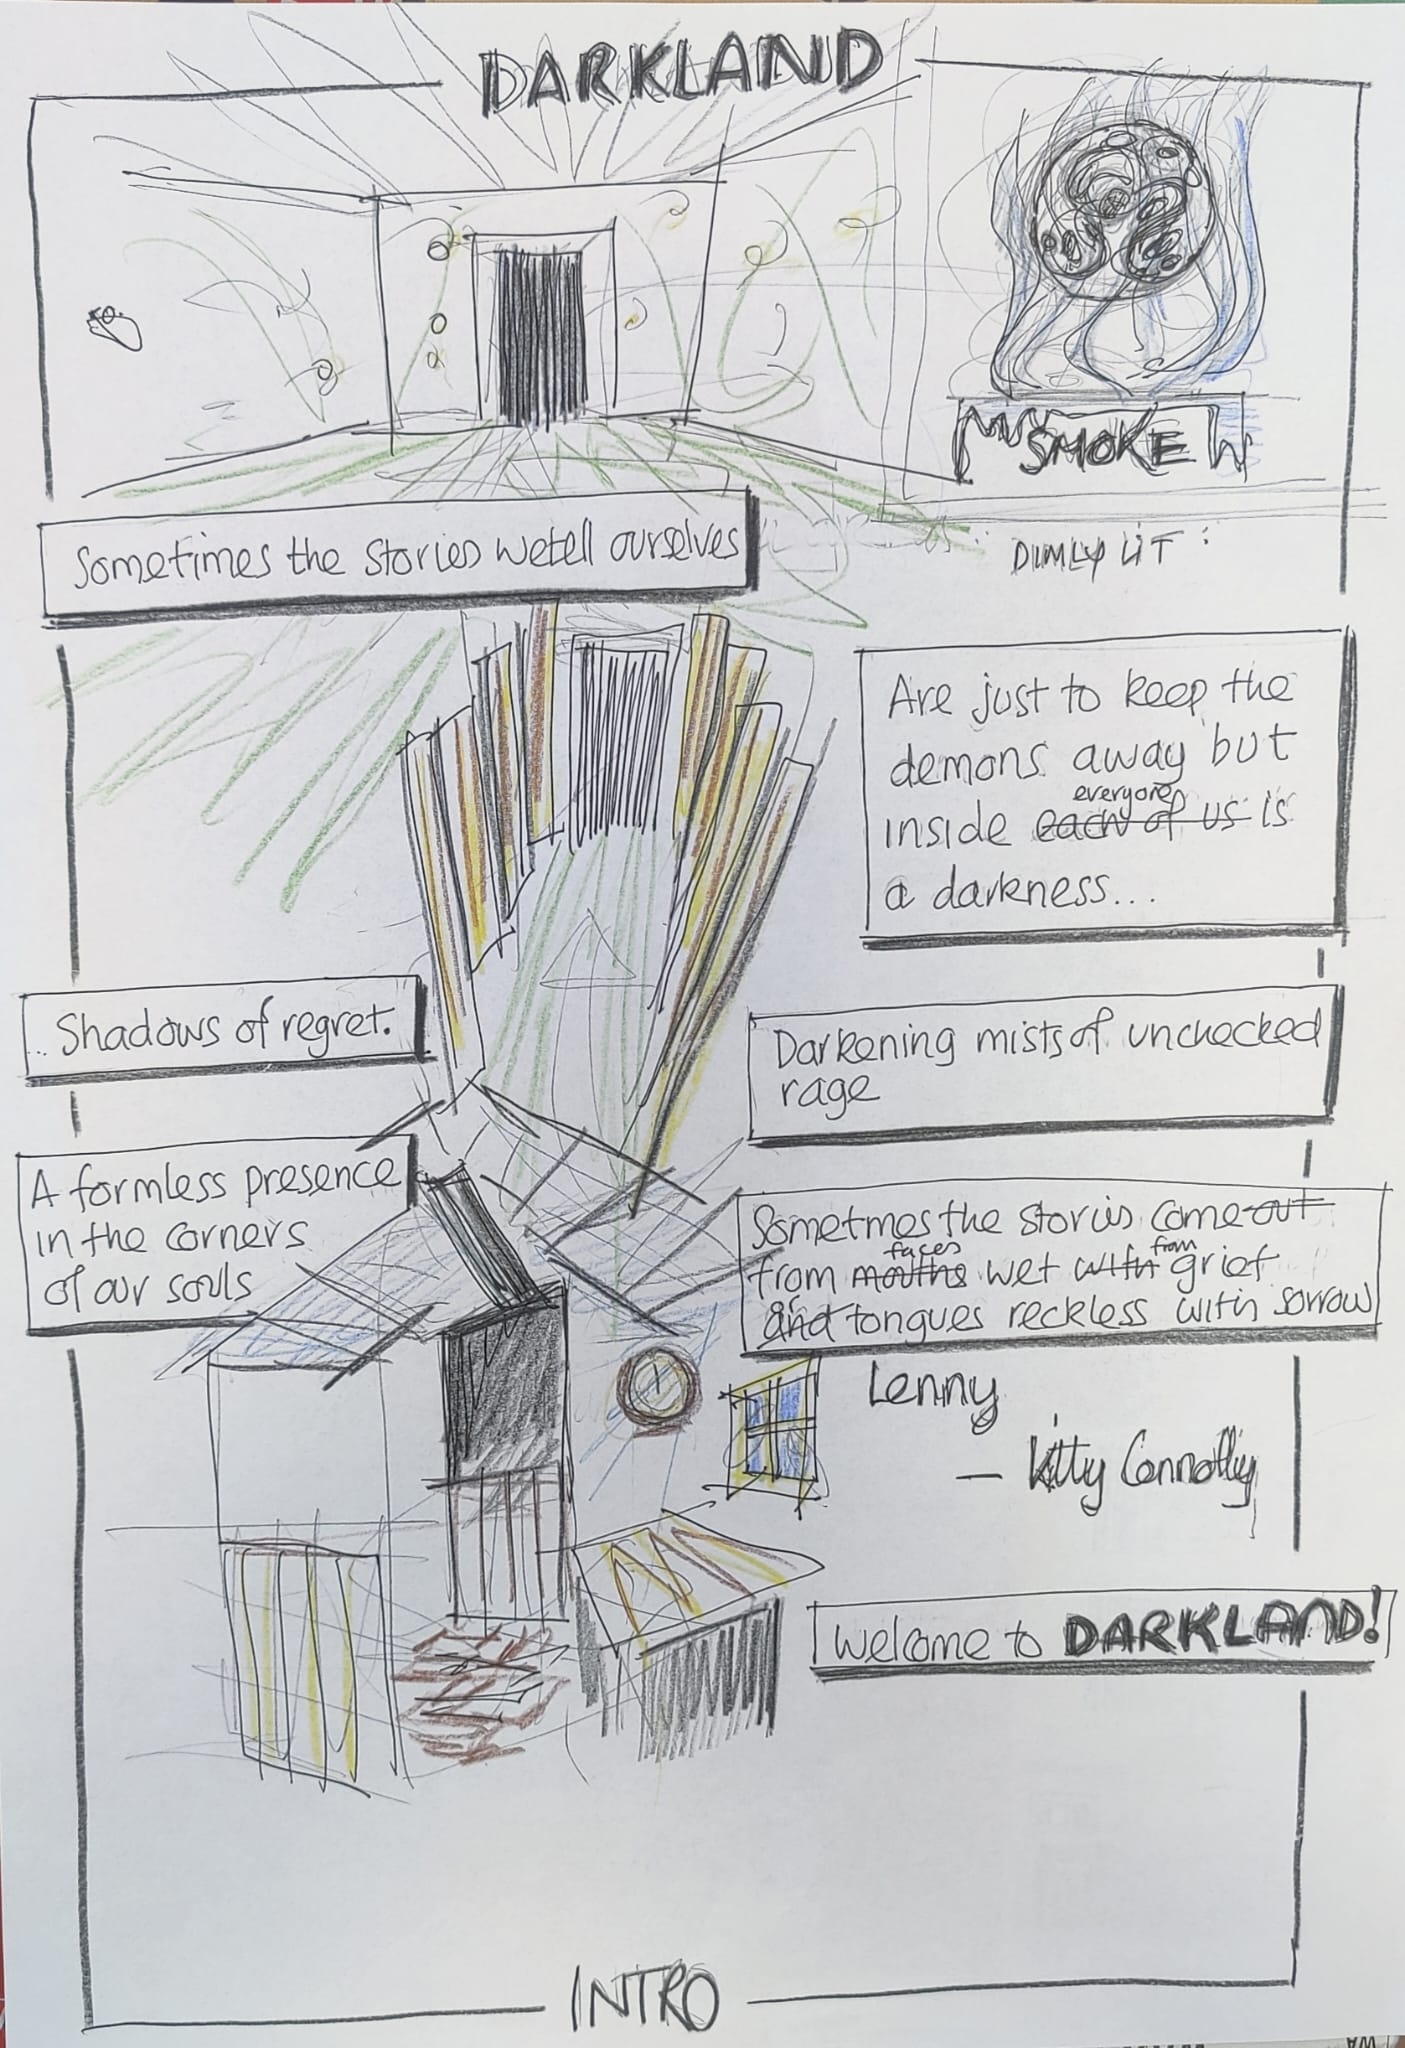 DARKLAND
SMOKE
DIMLY LIT
Sometimes the stories we tell ourselves
Are just to keep the
demons away but
everyone
inside each of us is
a darkness...
... Shadows of regret.
Darkening mists of unchecked
rage
A formless presence
in the corners
of our souls
Sometmes the stories come out
faces from
from mouths wet with grief
or
and tongues reckless with sorrow
Lenny
— Kitty Connolly
Welcome to DARKLAND!
INTRO